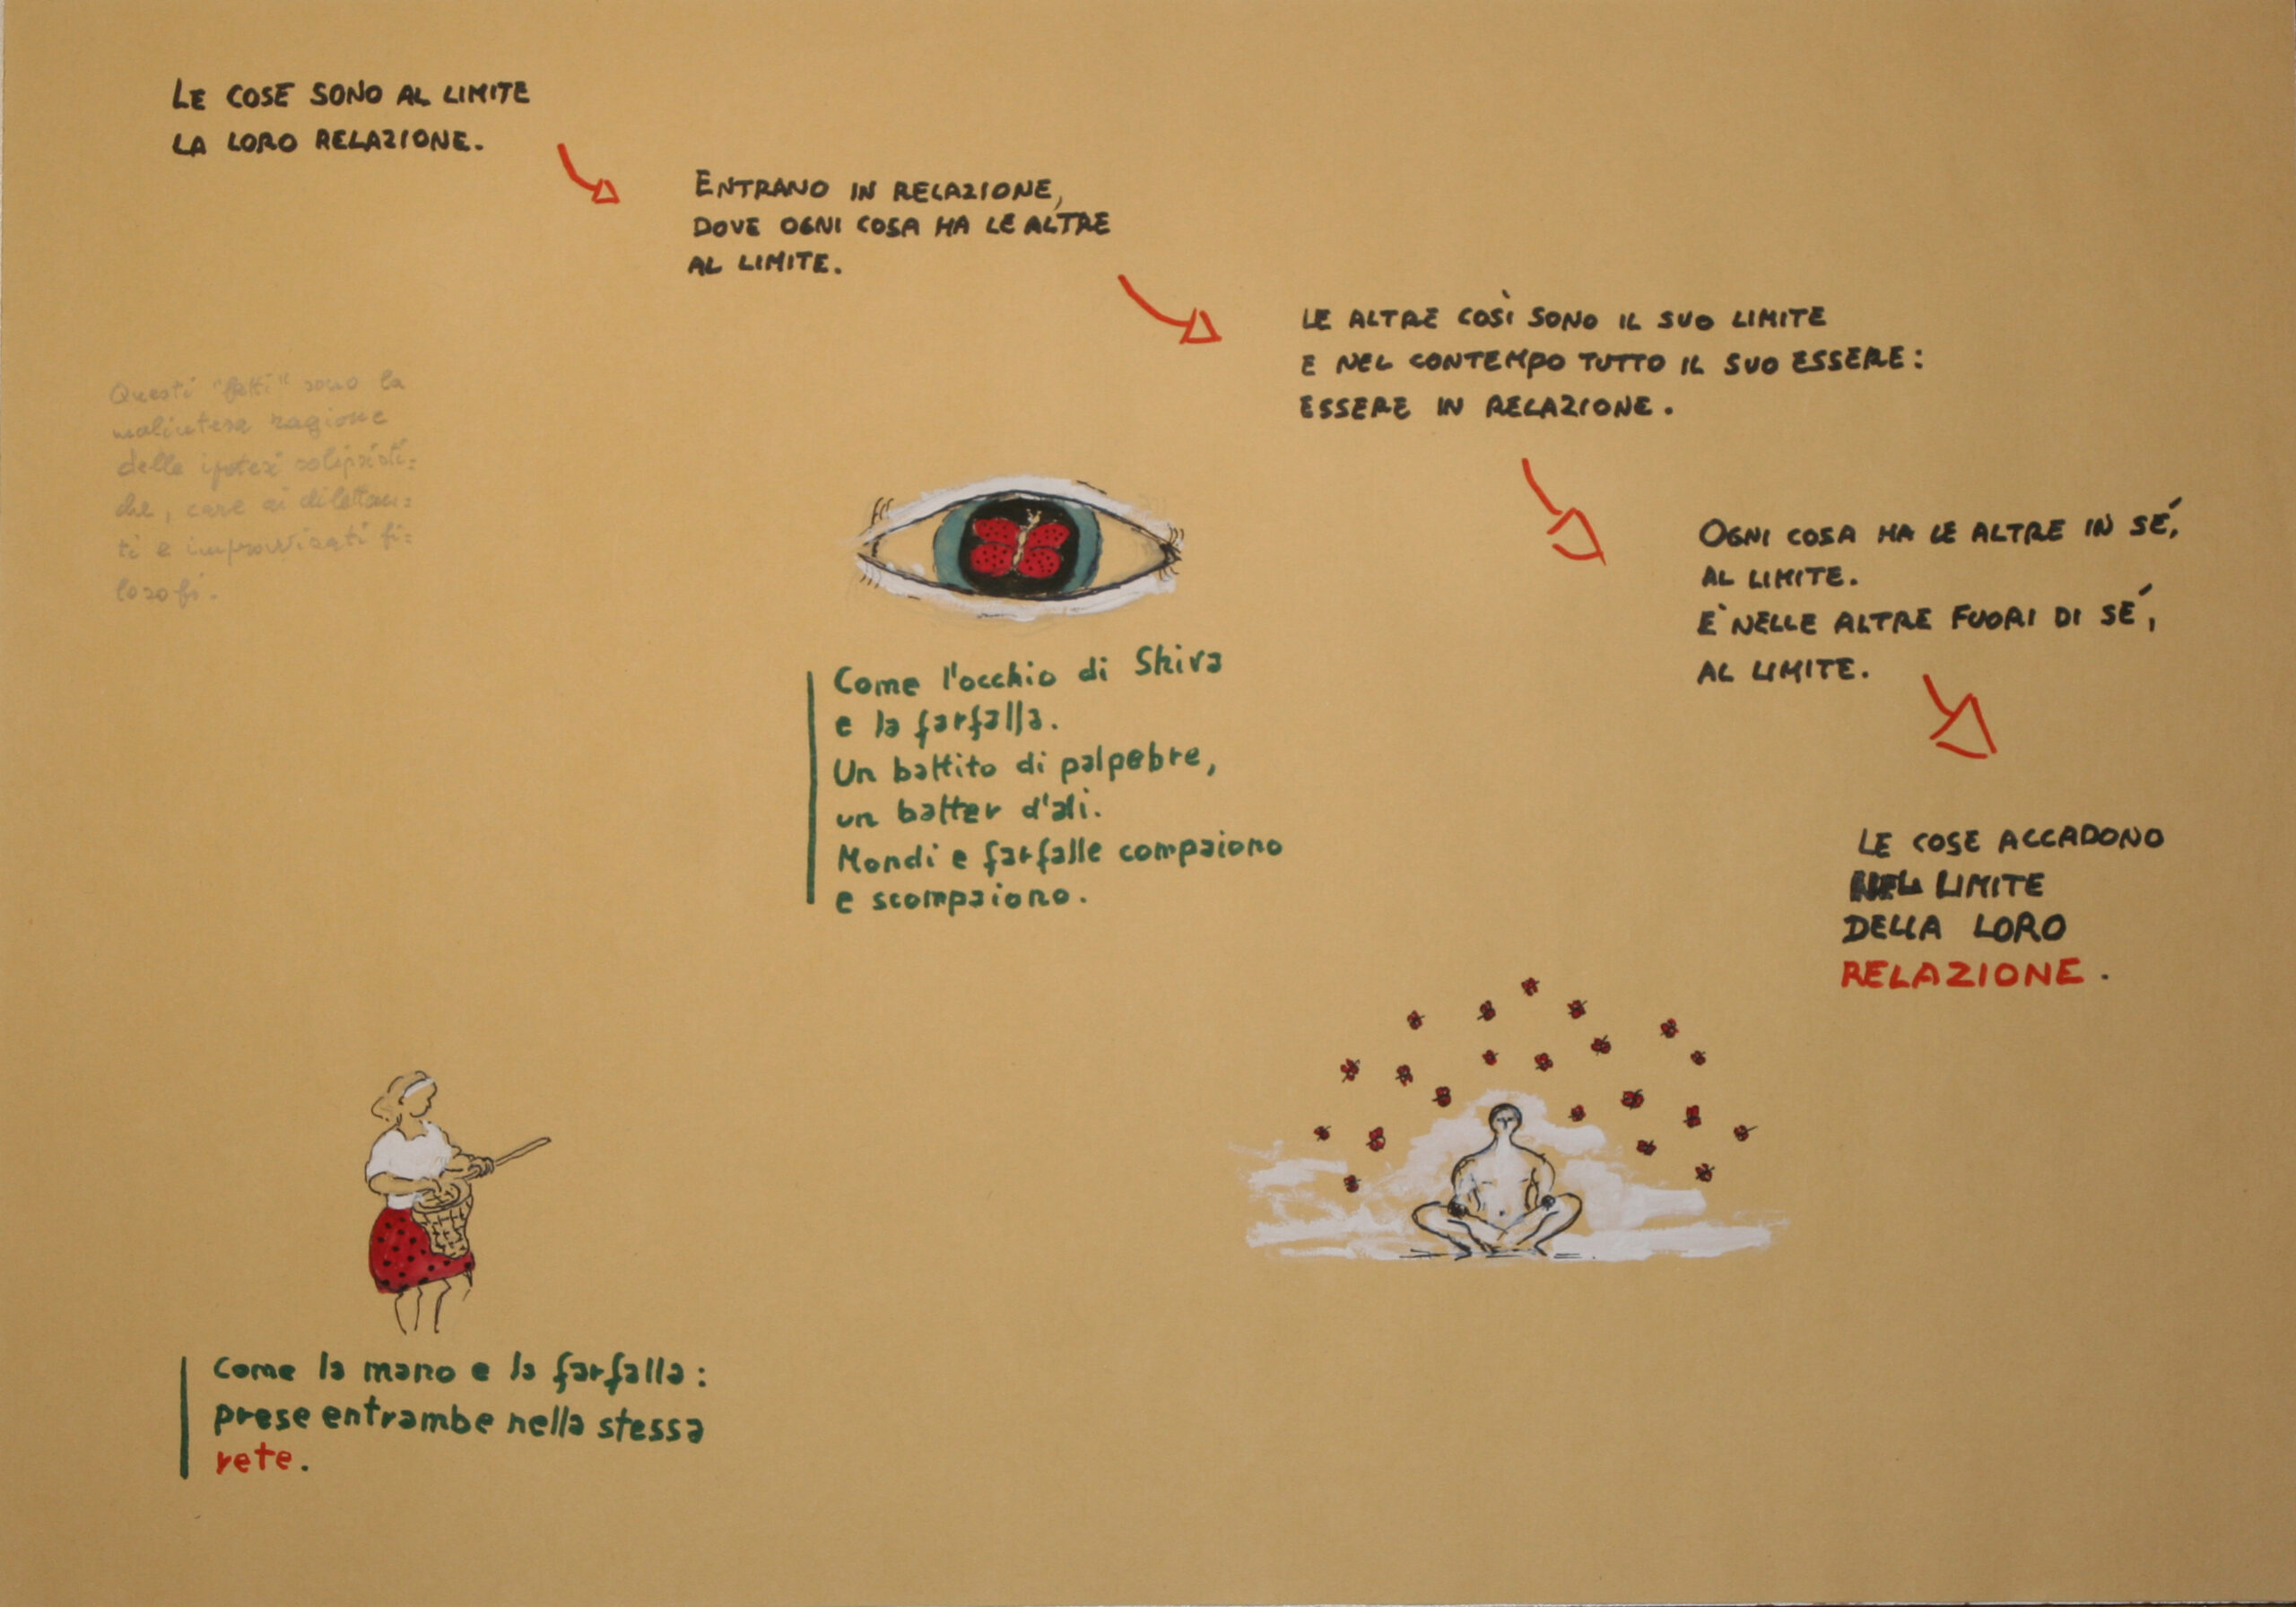 LE COSE SONO AL LIMITE
LA LORO RELAZIONE.
ENTRANO IN RELAZIONE,
DOVE OGNI COSA HA LE ALTRE
AL LIMITE.
LE ALTRE COSÌ SONO IL SUO LIMITE
E NEL CONTEMPO TUTTO IL SUO ESSERE:
ESSERE IN RELAZIONE.
Questi "fatti" sono la
malintesa ragione
delle ipotesi solipsisti=
che, care ai dilettan=
ti e improvvisati fi=
losofi.
OGNI COSA HA LE ALTRE IN SÉ,
AL LIMITE.
E' NELLE ALTRE FUORI DI SÉ,
AL LIMITE.
Come l'occhio di Shiva
e la farfalla.
Un battito di palpebre,
un batter d'ali.
Mondi e farfalle compaiono
e scompaiono.
LE COSE ACCADONO
NEL LIMITE
DELLA LORO
RELAZIONE.
Come la mano e la farfalla:
prese entrambe nella stessa
rete.